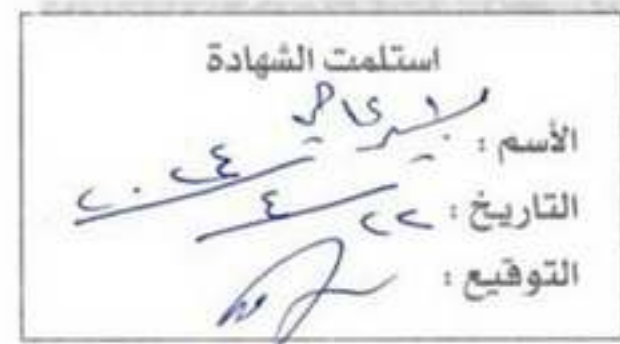 استلمت الشهادة
الأسم :
التاريخ : ٢٢ / ٤ / ٢٠٢٤
التوقيع :